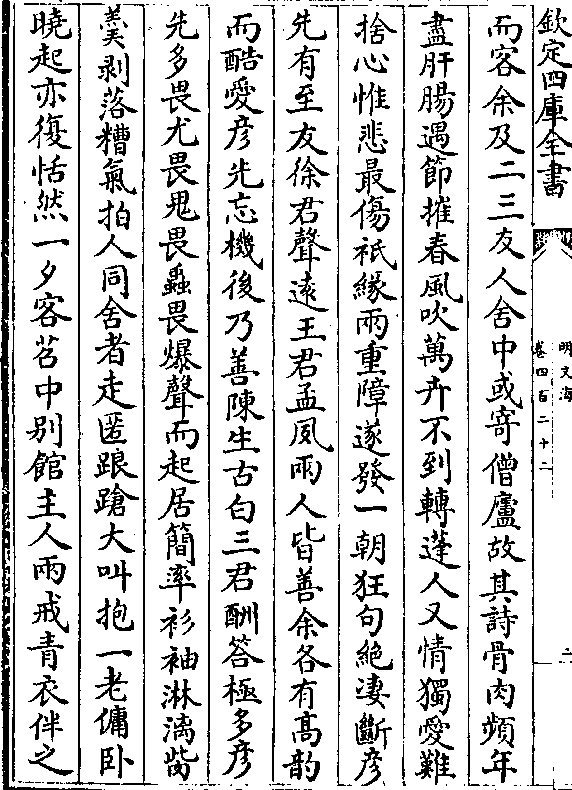 欽定四庫全書
明文海
卷四百二十二
二
而容余及二三友人舍中或寄僧廬故其詩骨肉頻年
盡肝腸遇節摧春風吹萬卉不到轉蓬人又情獨愛難
捨心惟悲最傷祇緣兩重障遂發一朝狂句絶淒斷彦
先有至友徐君聲遠王君孟夙兩人皆善余各有髙韵
而酷愛彦先忘機後乃善陳生古白三君酬答極多彦
先多畏尤畏鬼畏蝨畏爆聲而起居簡率衫袖淋漓齒
羹剥落糟氣拍人同舍者走匿踉蹌大叫抱一老傭卧
曉起亦復恬然一夕客苕中别館主人兩戒青衣伴之